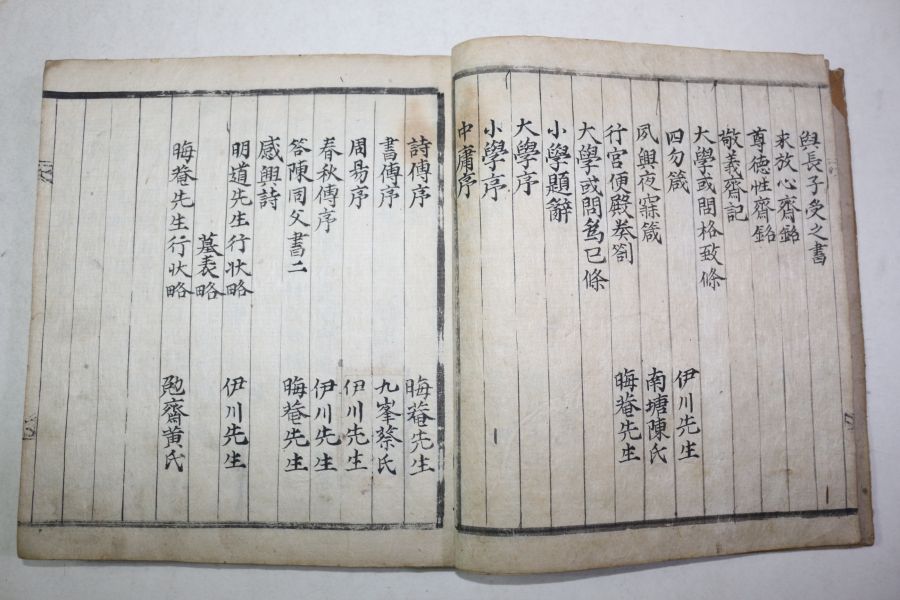 與長子受之書
求放心齋銘
尊德性齋銘
敬義齋記
大學或問格致條
四勿箴 伊川先生
夙興夜寐箴 南塘陳氏
行宮便殿奏劄 晦菴先生
大學或問爲己條
小學題辭
大學序
小學序
中庸序
詩傳序 晦菴先生
書傳序 九峯蔡氏
周易序 伊川先生
春秋傳序 伊川先生
答陳同父書二 晦菴先生
感興詩
明道先生行状略 伊川先生
墓表略
晦菴先生行状略 勉齋黃氏